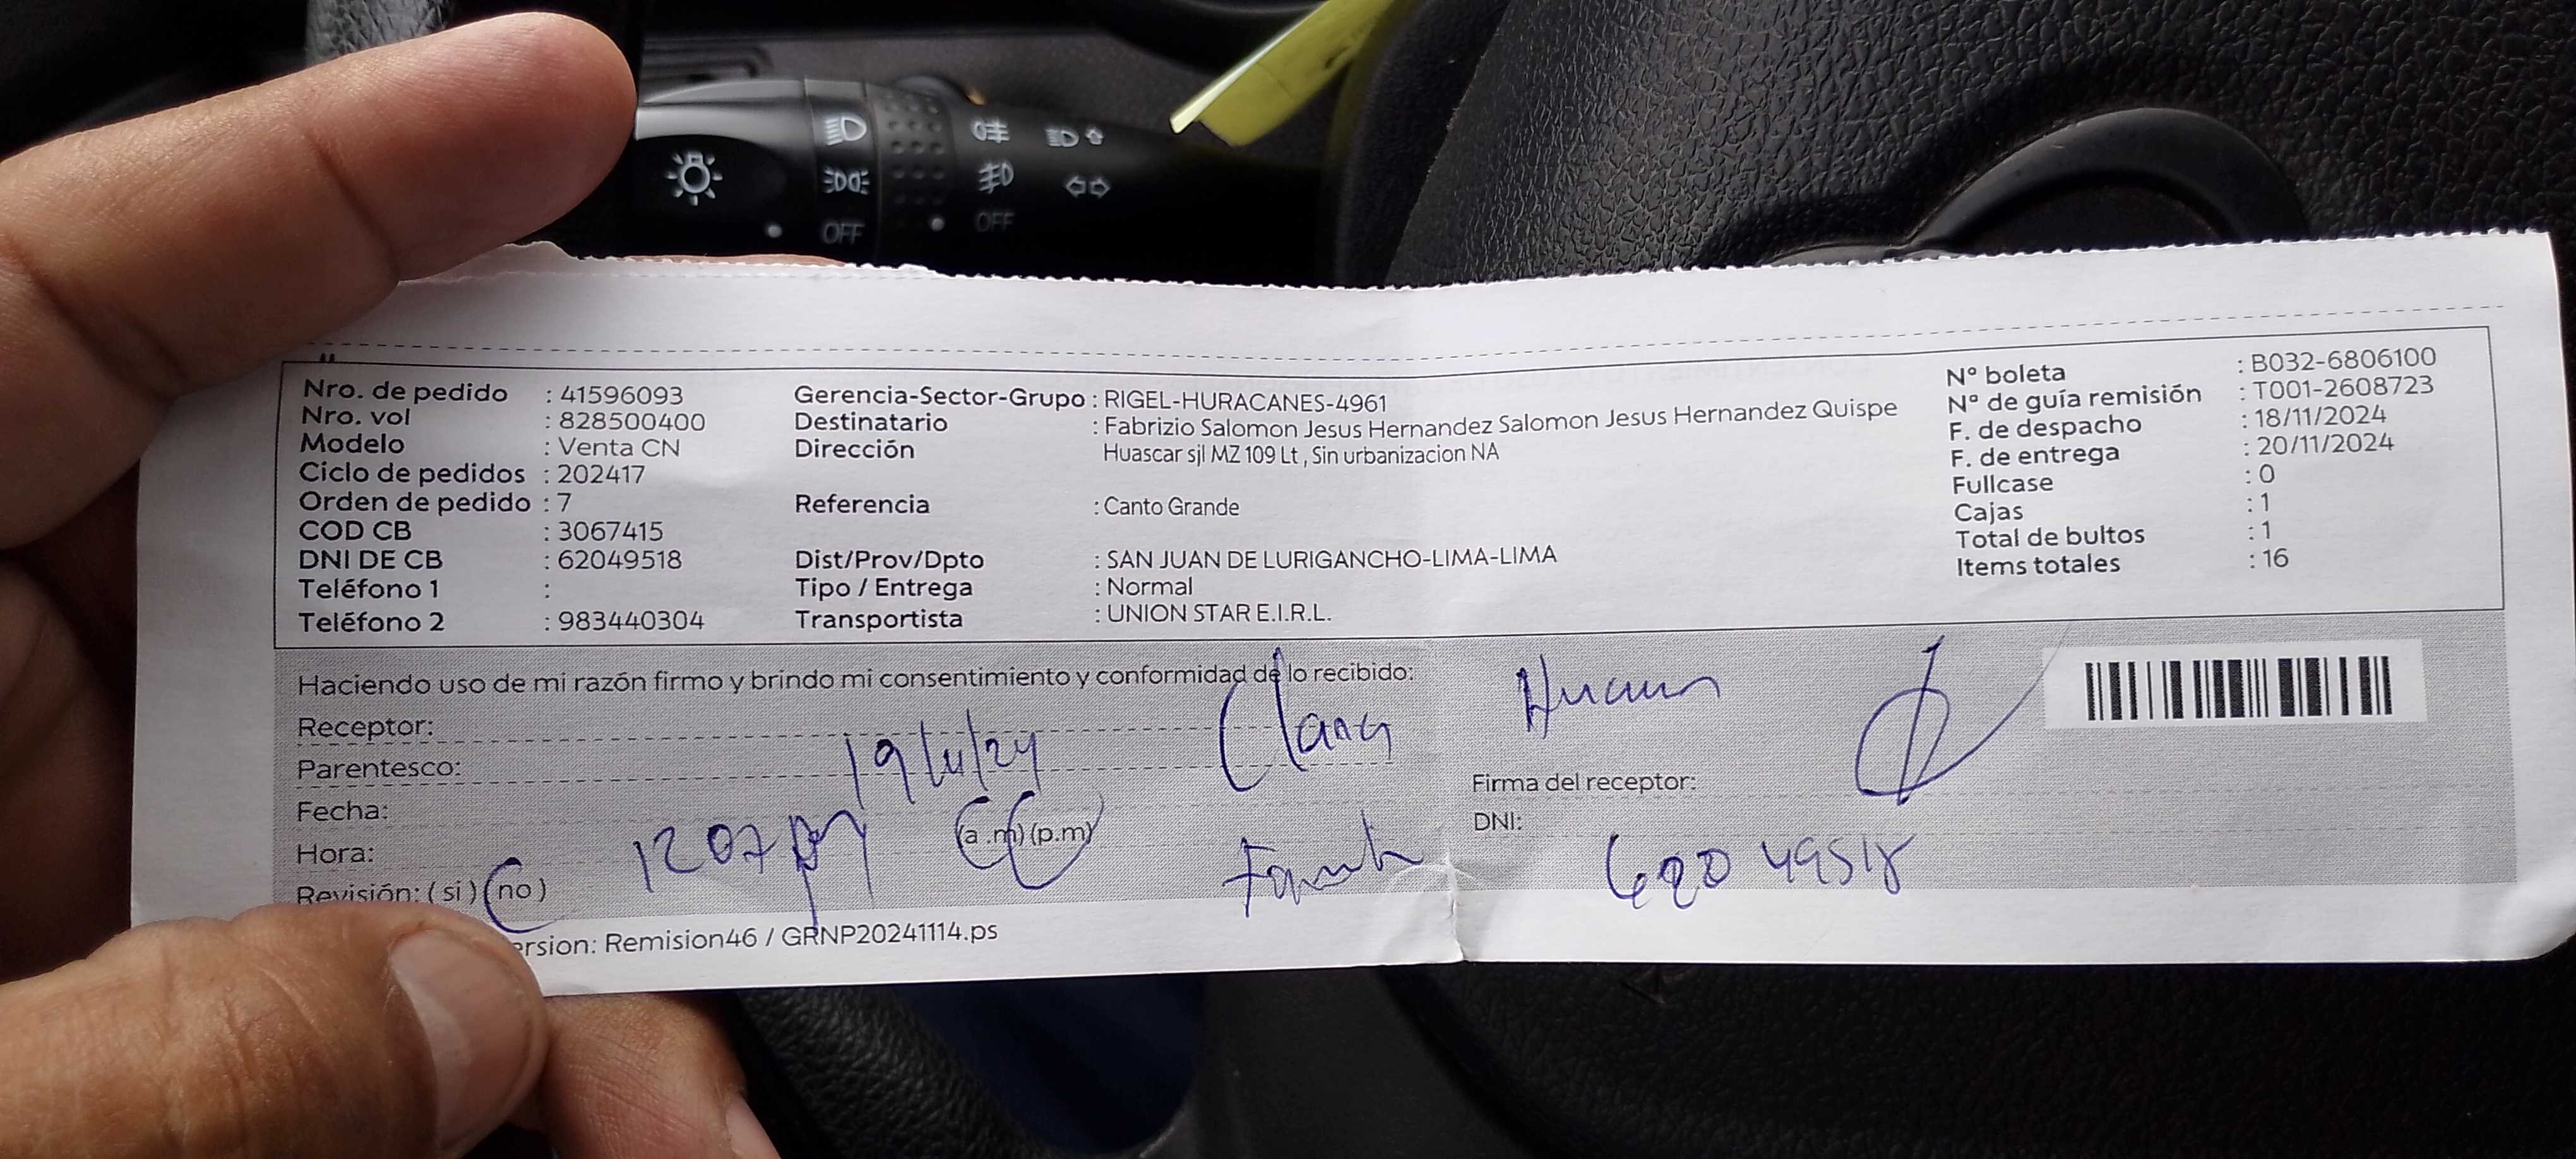 OFF
OFF
Nro. de pedido : 41596093
Nro. vol : 828500400
Modelo : Venta CN
Ciclo de pedidos : 202417
Orden de pedido : 7
COD CB : 3067415
DNI DE CB : 62049518
Teléfono 1 :
Teléfono 2 : 983440304
Gerencia-Sector-Grupo : RIGEL-HURACANES-4961
Destinatario : Fabrizio Salomon Jesus Hernandez Salomon Jesus Hernandez Quispe
Dirección Huascar sjl MZ 109 Lt , Sin urbanizacion NA
Referencia : Canto Grande
Dist/Prov/Dpto : SAN JUAN DE LURIGANCHO-LIMA-LIMA
Tipo / Entrega : Normal
Transportista : UNION STAR E.I.R.L.
N° boleta : B032-6806100
N° de guía remisión : T001-2608723
F. de despacho : 18/11/2024
F. de entrega : 20/11/2024
Fullcase : 0
Cajas : 1
Total de bultos : 1
Items totales : 16
Haciendo uso de mi razón firmo y brindo mi consentimiento y conformidad de lo recibido:
Receptor:
Parentesco:
Fecha: 19/11/24
Hora: 1207 pm (a .m) (p.m)
Revisión: ( si ) ( no )
Firma del receptor:
DNI: 62049518
ersion: Remision46 / GRNP20241114.ps